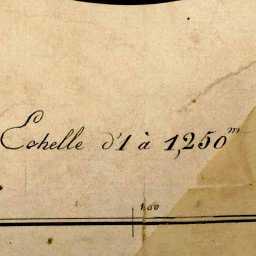 Echelle d'1 à 1,250^m
1,00